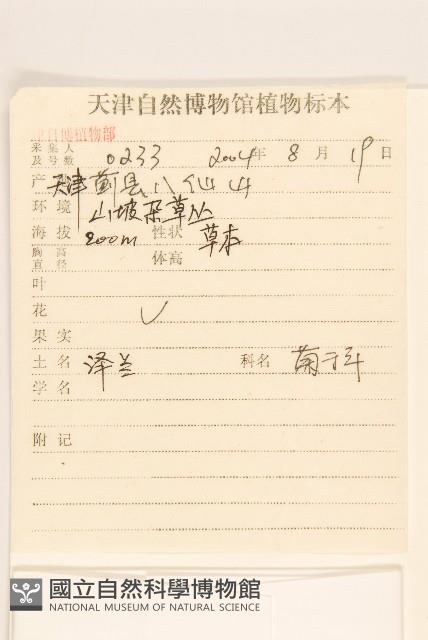 天津自然博物馆植物标本
津自博植物部
采集人及号数 0233 2004年 8 月 19 日
产 天津蓟县八仙山
环境 山坡杂草丛
海拔 200m 性状 草本
胸高直径 体高
叶
花 ✓
果实
土名 泽兰 科名 菊科
学名
附记
國立自然科學博物館
NATIONAL MUSEUM OF NATURAL SCIENCE